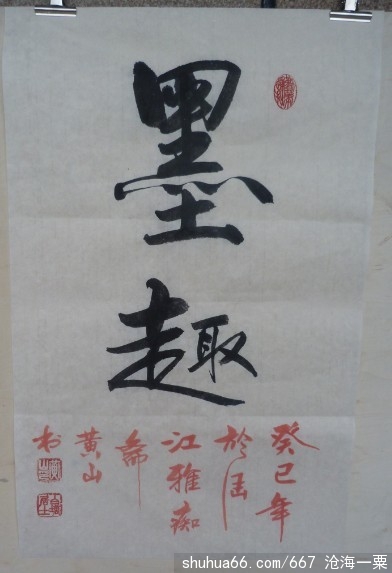 墨趣
癸巳年
於
江雅痴
黄山
书
shuhua66.com/667 沧海一粟